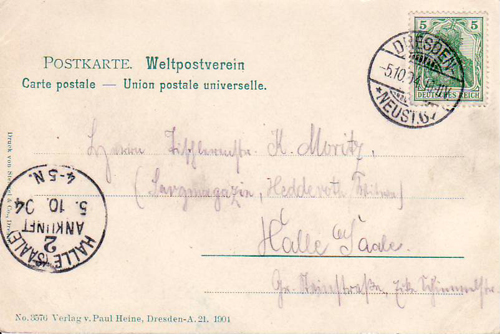 POSTKARTE. Weltpostverein
Carte postale — Union postale universelle.
5 5
DEUTSCHES REICH
DRESDEN-
-5.10.04
*NEUST. 6
Herrn K. Moritz,
(Sargmagazin,
Halle a/ Saale.
Gr. Steinstraße,
HALLE (SAALE)
2
ANKUNFT
5. 10. 04
4-5 N.
Druck von
No. 3576 Verlag v. Paul Heine, Dresden-A. 21. 1904